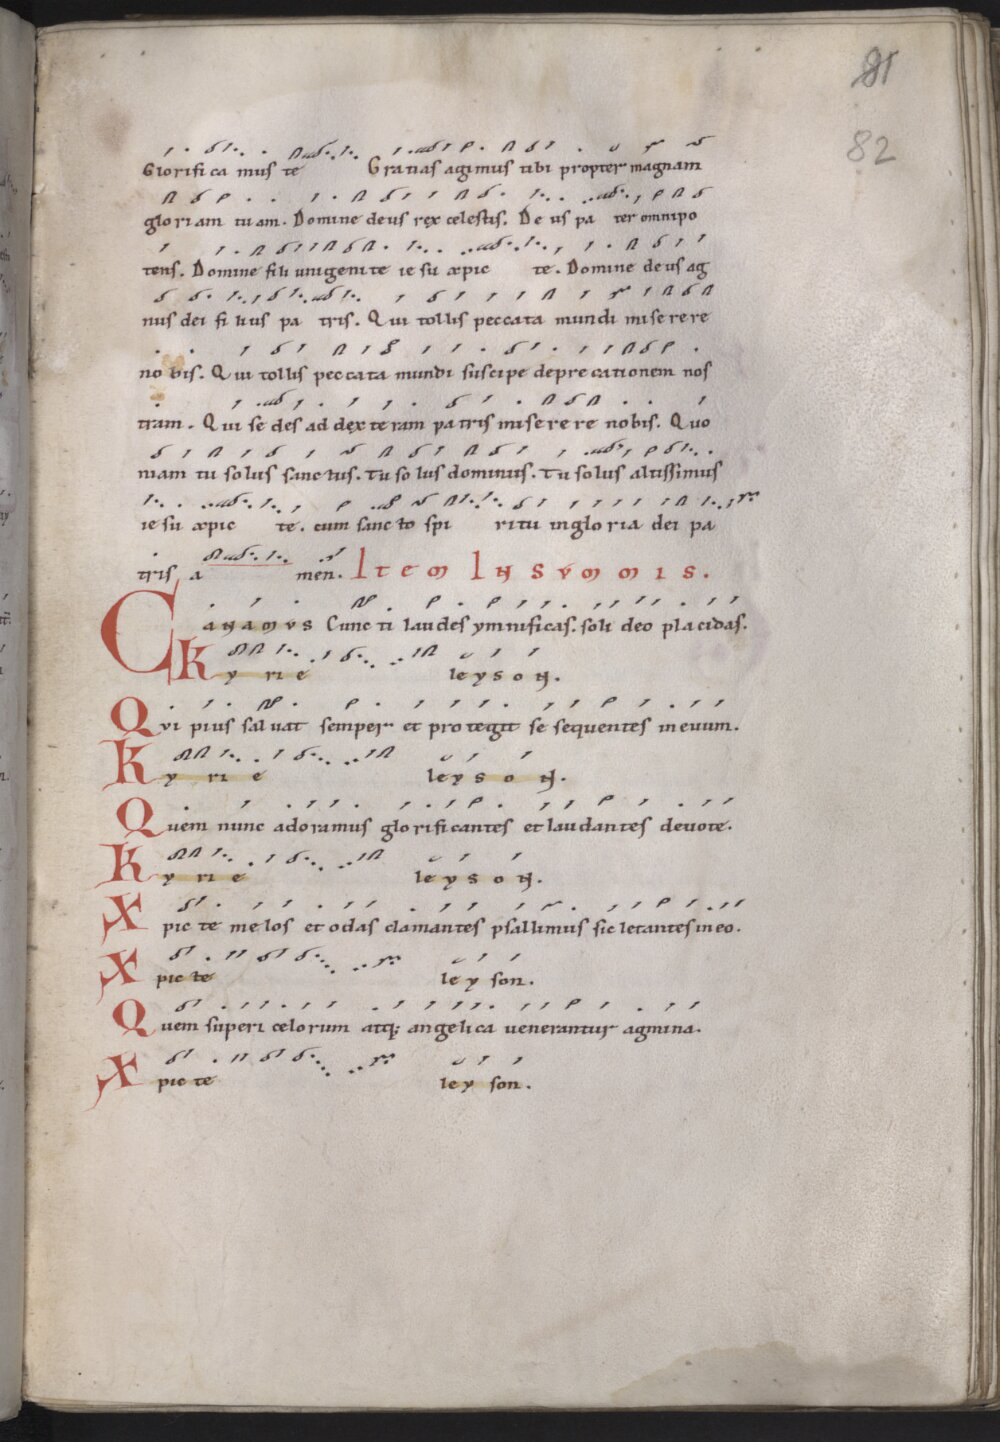 81
82
Glorifica mus te Gratias agimus tibi propter magnam
gloriam tuam. Domine deus rex celestis. De us pa ter omnipo
tens. Domine fili unigenite ie su xpic te. Domine deus ag
nus dei fi lius pa tris. Qui tollis peccata mundi miserere
no bis. Qui tollis peccata mundi suscipe deprecationem nos
tram. Qui se des ad dexteram patris miserere nobis. Quo
niam tu solus sanctus. Tu so lus dominus. Tu solus altissimus
ie su xpic te. cum sancto spi ritu in gloria dei pa
tris a men. Item In summis.
Canamus Cunc ti laudes ymnificas. soli deo placidas.
Ky ri e leyson.
Qvi pius saluat semper et protegit se sequentes in euum.
Ky ri e leyson.
Quem nunc adoramus glorificantes et laudantes deuote.
Ky ri e leyson.
Xpic te melos et odas clamantes psallimus sic letantes in eo.
Xpic te ley son.
Quem superi celorum atq; angelica uenerantur agmina.
Xpic te ley son.